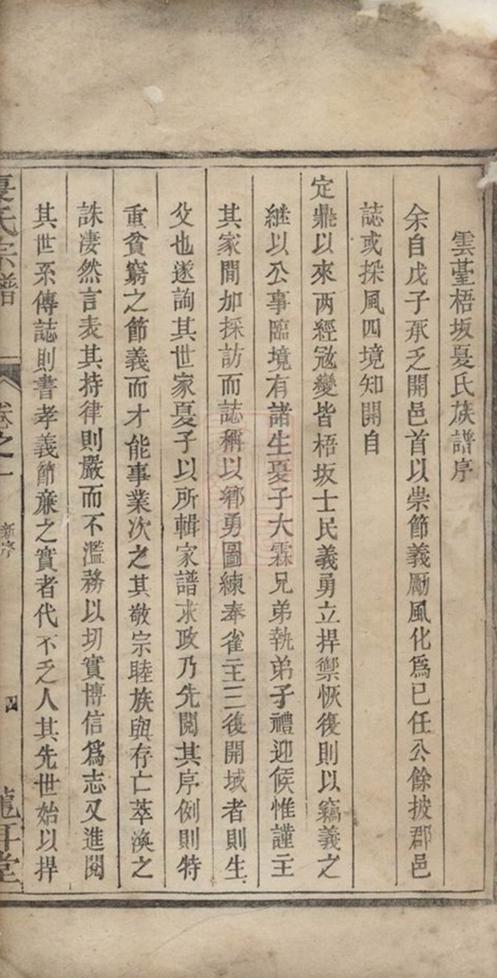 雲臺梧坂夏氏族譜序
余自戊子承乏開邑首以崇節義勵風化爲已任公餘披郡邑
誌或採風四境知開自
定鼎以來两經冦變皆梧坂士民義勇立捍禦恢復則以竊義之
繼以公事臨境有諸生夏子大霖兄弟執弟子禮迎候惟謹主
其家間加採訪而誌稱以鄉勇圖練奉雀主三復開城者則生
父也遂詢其世家夏子以所輯家譜求政乃先閱其序例則特
重貧窮之節義而才能事業次之其敬宗睦族與存亡萃渙之
誅凄然言表其持律則嚴而不濫務以切實博信爲志又進閱
其世系傳誌則書孝義節亷之實者代不乏人其先世始以捍
夏氏宗譜
卷之一
新序
四
龍耳堂